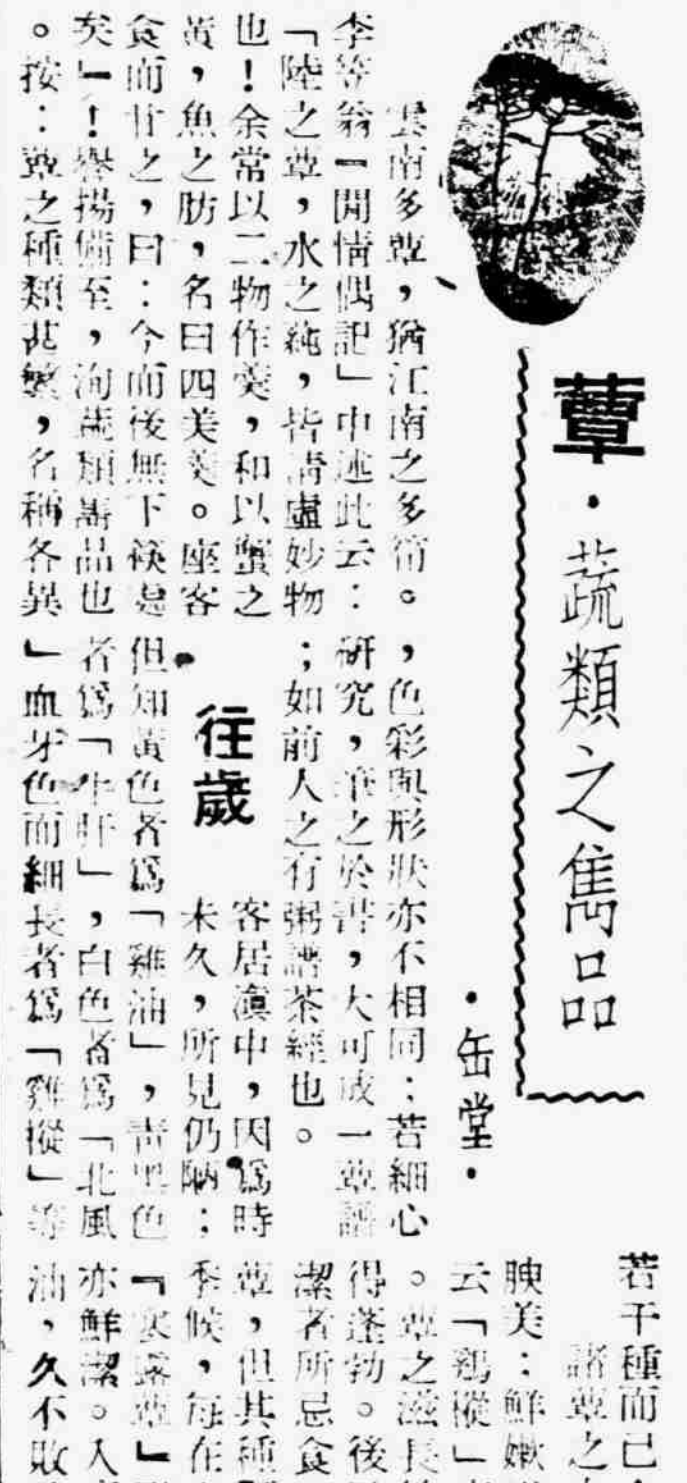 蕈·蔬類之雋品
·缶堂·
雲南多蕈，猶江南之多筍。
李笠翁「閒情偶記」中述此云：
「陸之蕈，水之蓴，皆清虛妙物
也！余常以二物作羹，和以蟹之
黃，魚之肪，名曰四美羹。座客
食而甘之，曰：今而後無下筷處
矣」！譽揚備至，洵蔬類雋品也
。按：蕈之種類甚繁，名稱各異
，色彩與形狀亦不相同；若細心
研究，筆之於書，大可成一蕈譜
；如前人之有粥譜茶經也。
往歲
客居滇中，因爲時
未久，所見仍陋；
但知黃色者爲「雞油」，青黑色
者爲「牛肝」，白色者爲「北風
」血牙色而細長者爲「雞樅」等
若干種而已
諸蕈之
腴美：鮮嫩
云「鷄樅」
。蕈之滋長
得蓬勃。後
潔者所忌食
蕈，但其種
季候，每在
『寒露蕈』
亦鮮潔。入
油，久不敗